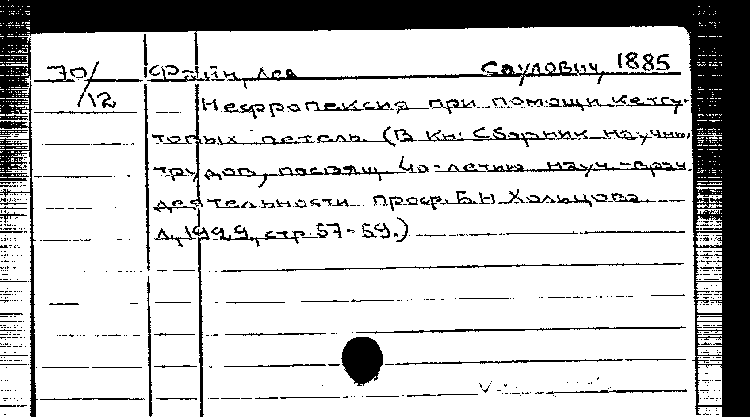 70/12 Файн, Лев Саулович, 1885
Нефропексия при помощи кетгу-
товых петель (В кн: Сборник научных
трудов, посвящ 40-летию науч.-врач
деятельности проф. Б.Н. Хольцова.
Л., 1929, стр. 57-59.)